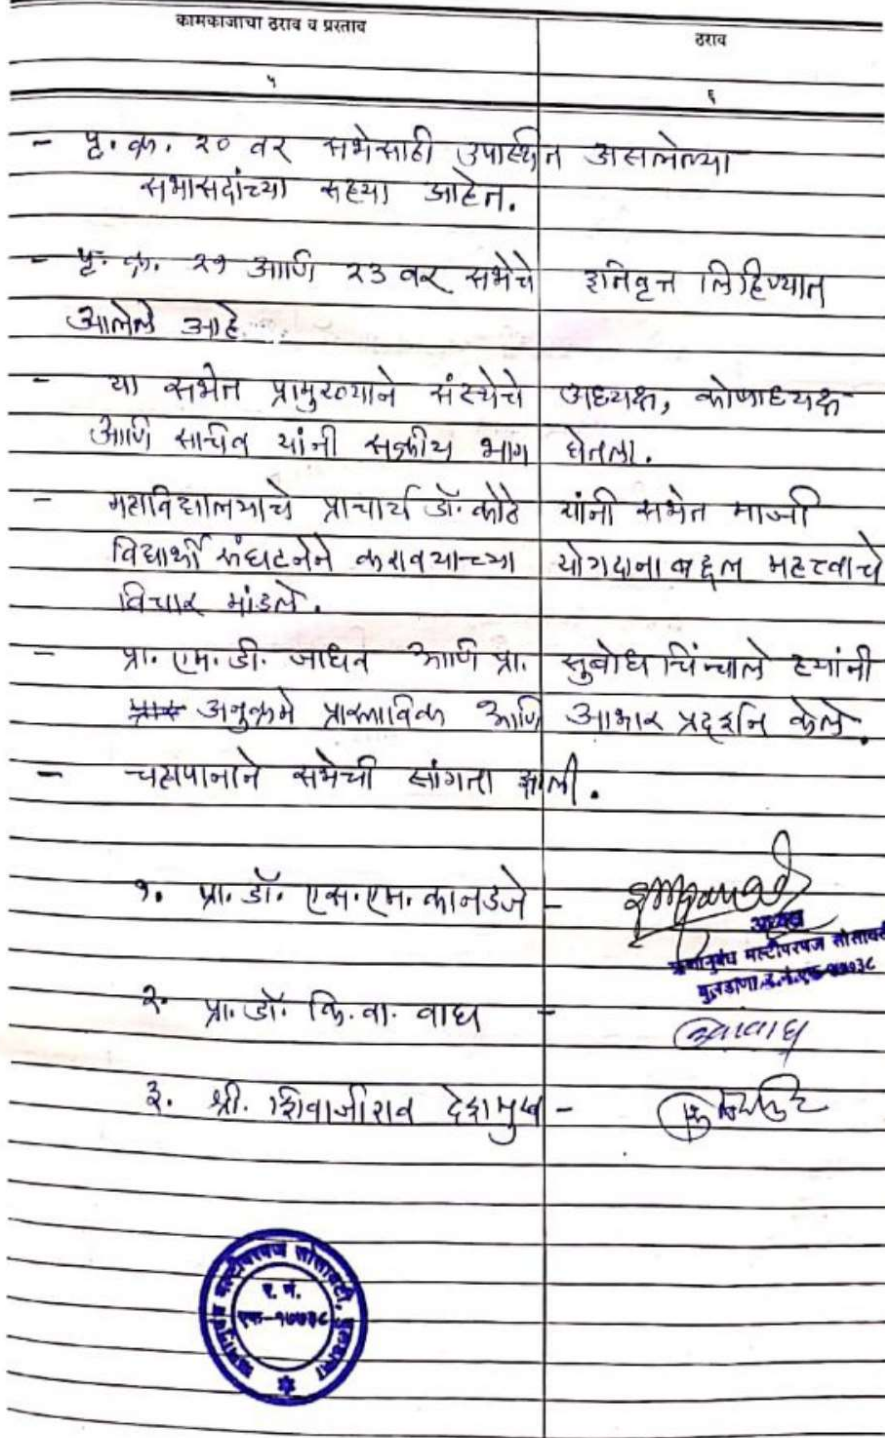 कामकाजाचा ठराव व प्रस्ताव
ठराव
५
६
- पृ. क्र. २० वर सभेसाठी उपास्थित असलेल्या
सभासदांच्या सह्या आहेत.
- पृ. क्र. २१ आणि २३ वर सभेचे इतिवृत्त लिहिण्यात
आलेले आहे.
- या सभेत प्रामुख्याने संस्थेचे अध्यक्ष, कोषाध्यक्ष
आणि सचिव यांनी सक्रीय भाग घेतला.
- महाविद्यालयाचे प्राचार्य डॉ. कोठे यांनी सभेत माजी
विद्यार्थी संघटनेने करावयाच्या योगदानाबद्दल महत्त्वाचे
विचार मांडले.
- प्रा. एम. डी. जाधव आणि प्रा. सुबोध चिंचाले ह्यांनी
अनुक्रमे प्रास्ताविक आणि आभार प्रदर्शन केले.
- चहापानाने सभेची सांगता झाली.
१. प्रा. डॉ. एस. एम. कानडजे -
अध्यक्ष
मल्टीपरपज सोसायटी
बुलडाणा
२. प्रा. डॉ. कि. वा. वाघ -
३. श्री. शिवाजीराव देशमुख -
मल्टीपरपज सोसायटी, बुलडाणा
र. नं.
एफ-१७७३८